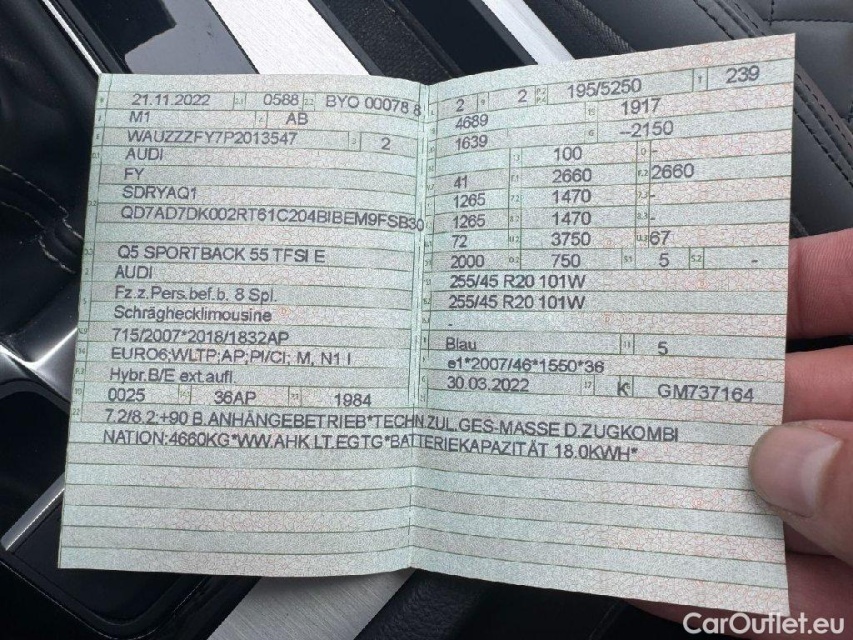 21.11.2022 0588 BYO 00078 8
M1 AB
WAUZZZFY7P2013547 2
AUDI
FY
SDRYAQ1
QD7AD7DK002RT61C204BIBEM9FSB30
Q5 SPORTBACK 55 TFSI E
AUDI
Fz.z.Pers.bef.b. 8 Spl.
Schräghecklimousine
715/2007*2018/1832AP
EURO6;WLTP;AP;PI/CI; M, N1 I
Hybr.B/E ext.aufl.
0025 36AP 1984
2 2 195/5250 239
4689 1917
1639 --2150
100 -
41 2660 2660
1265 1470 -
1265 1470 -
72 3750 67
2000 750 5 -
255/45 R20 101W
255/45 R20 101W
-
Blau 5
e1*2007/46*1550*36
30.03.2022 K GM737164
7.2/8.2:+90 B.ANHÄNGEBETRIEB*TECHN.ZUL.GES-MASSE D.ZUGKOMBI
NATION:4660KG*WW.AHK LT.EGTG*BATTERIEKAPAZITÄT 18.0KWH*
CarOutlet.eu